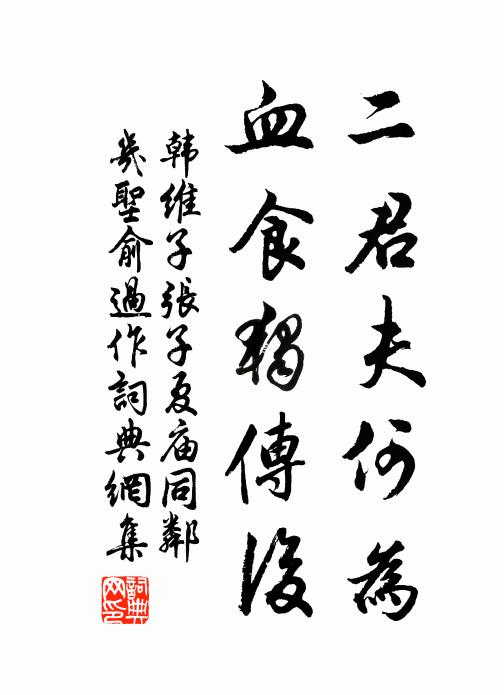 二君夫何為
血食獨傳後
韩維子張子夏庙同鄰
幾聖俞過作詞典網集
詞典網印